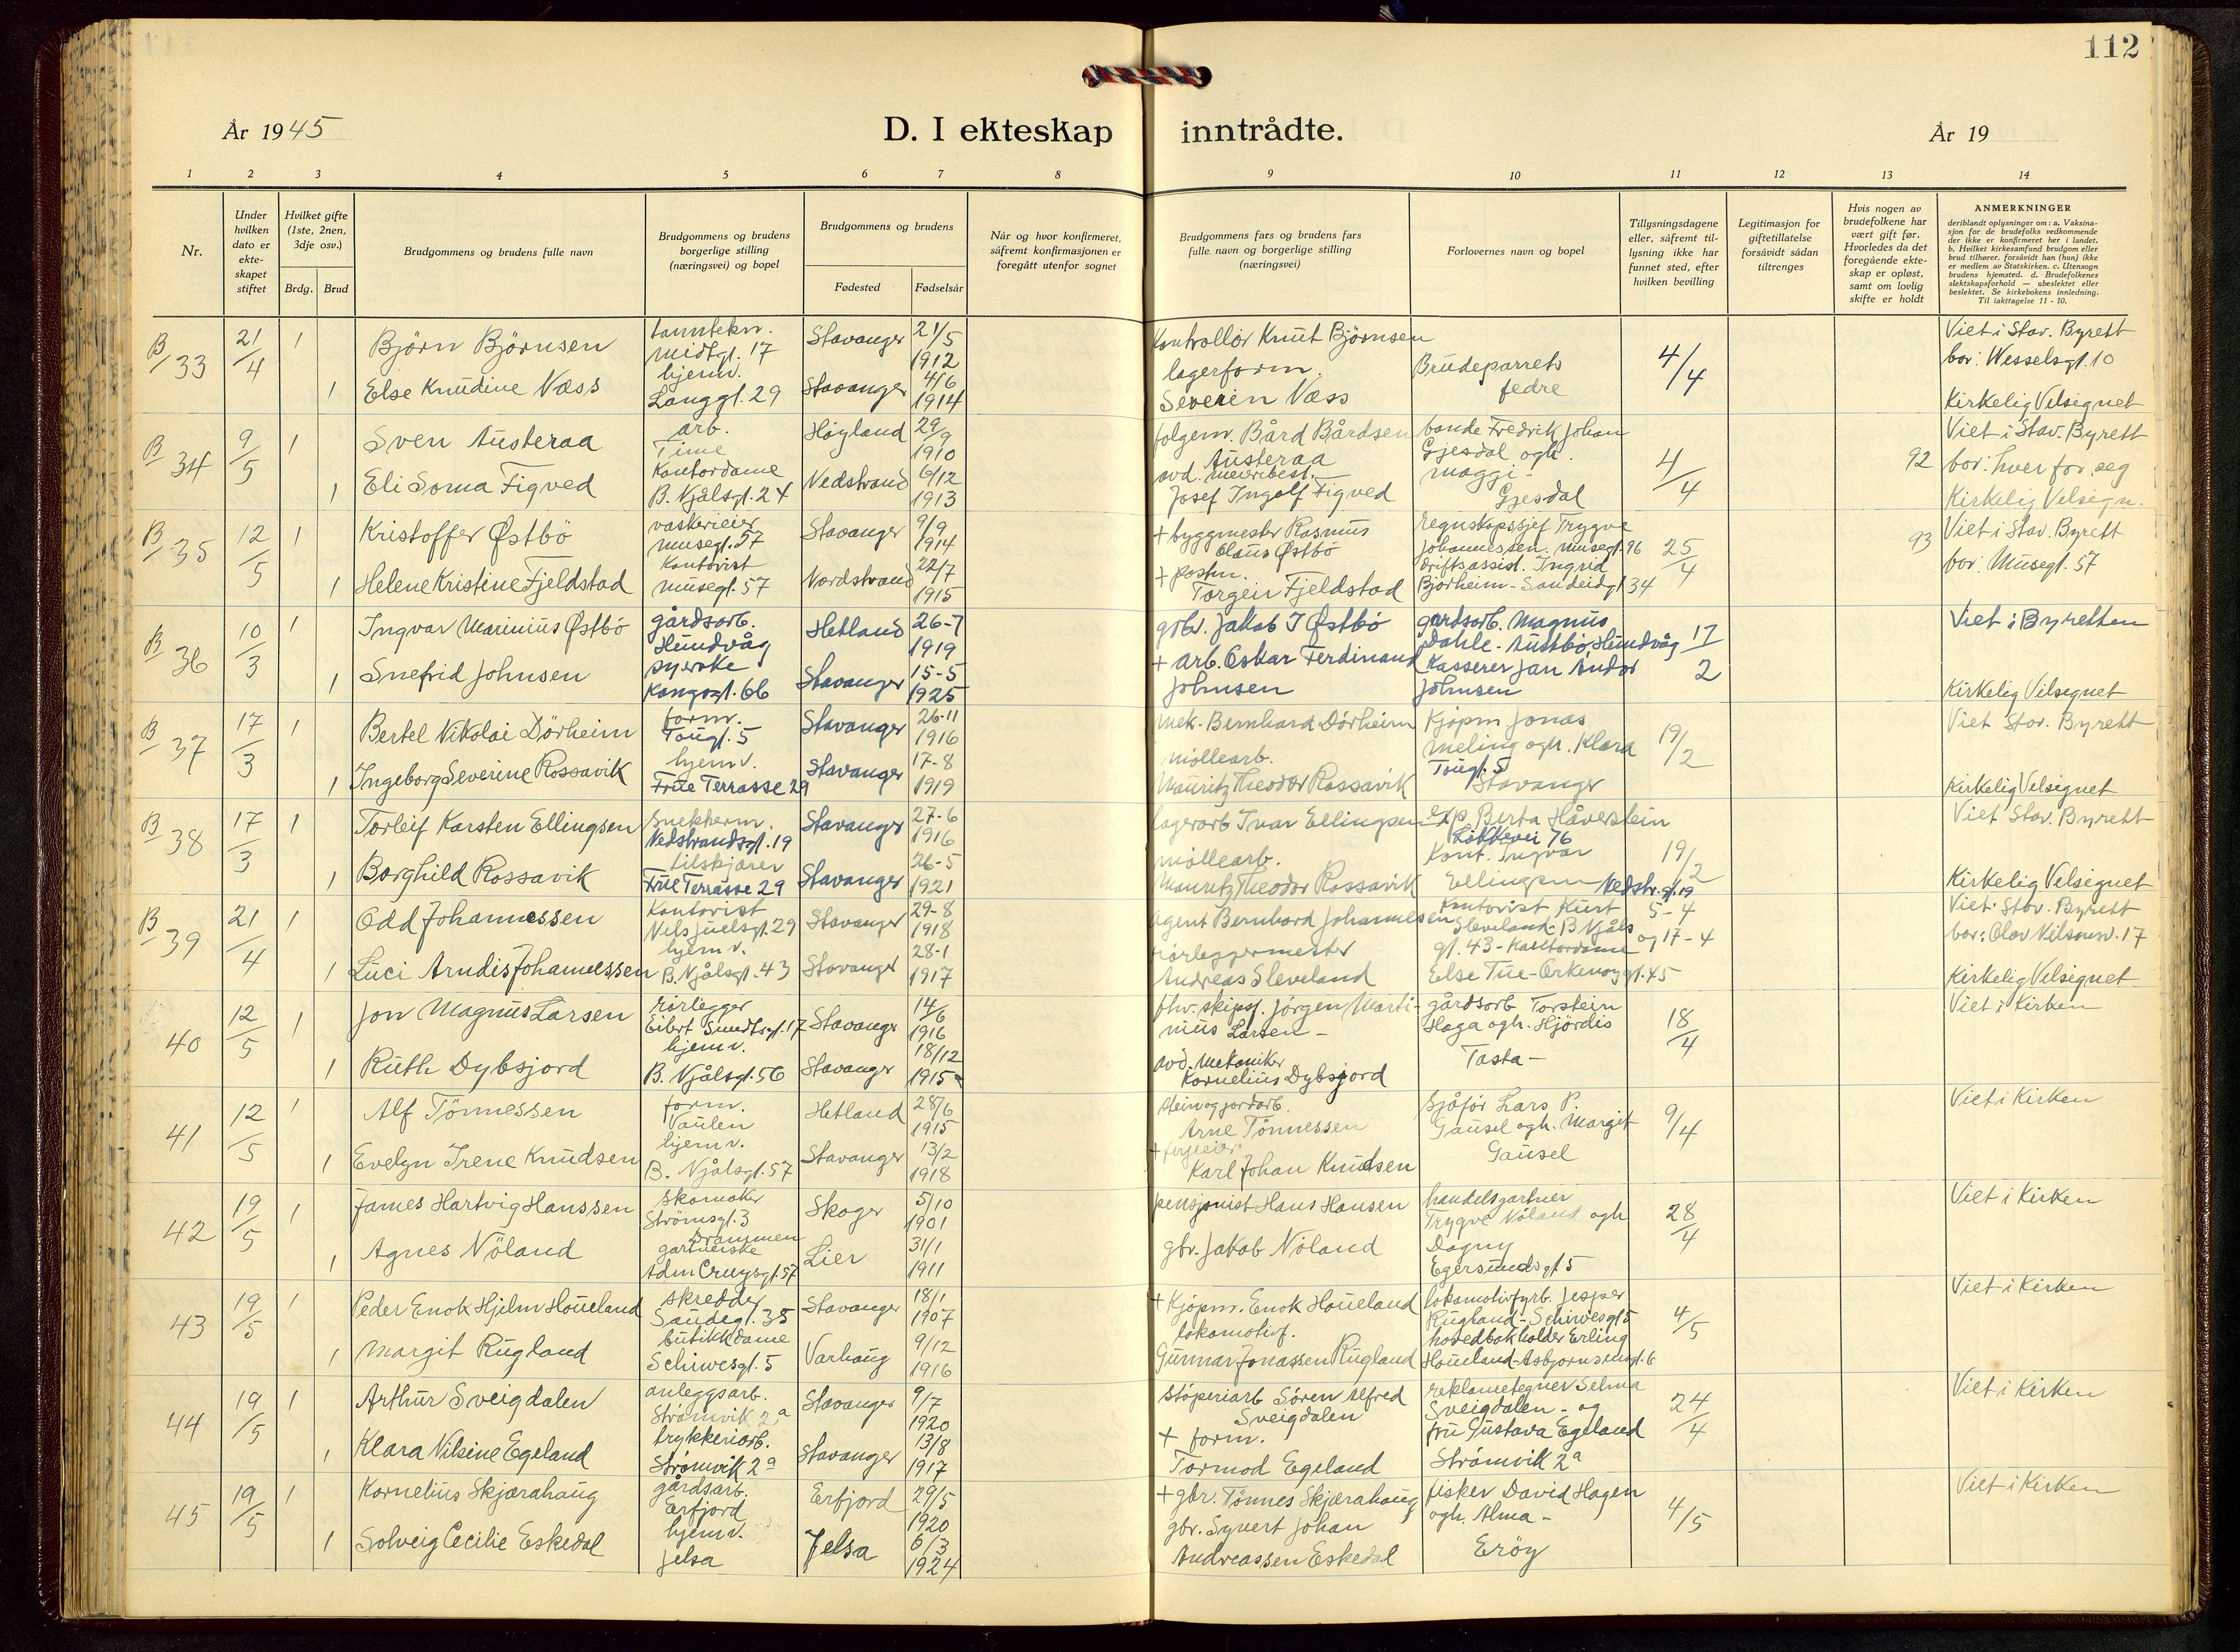 112
År 1945
D. I ekteskap inntrådte.
År 19
1 2 3 4 5 6 7 8 9 10 11 12 13 14
Nr.
Under hvilken dato er ekte-skapet stiftet
Hvilket gifte (1ste, 2nen, 3dje osv.)
Brdg. Brud
Brudgommens og brudens fulle navn
Brudgommens og brudens borgerlige stilling (næringsvei) og bopel
Brudgommens og brudens
Fødested Fødselsår
Når og hvor konfirmeret, såfremt konfirmasjonen er foregått utenfor sognet
Brudgommens fars og brudens fars fulle navn og borgerlige stilling (næringsvei)
Forlovernes navn og bopel
Tillysningsdagene eller, såfremt til-lysning ikke har funnet sted, efter hvilken bevilling
Legitimasjon for giftetillatelse forsåvidt sådan tiltrenges
Hvis nogen av brudefolkene har vært gift før. Hvorledes da det foregående ekte-skap er opløst, samt om lovlig skifte er holdt
ANMERKNINGER
deriblandt oplysninger om: a. Vaksina-sjon for de brudefolks vedkommende der ikke er konfirmeret her i landet. b. Hvilket kirkesamfund brudgom eller brud tilhører, forsåvidt han (hun) ikke er medlem av Statskirken. c. Utensogn brudens hjemsted. d. Brudefolkenes slektskapsforhold — ubeslektet eller beslektet. Se kirkebokens innledning. Til iakttagelse 11 - 10.
B/33 21/4 1 Björn Björnsen tanntekn. Midtgt. 17 Stavanger 21/5 1912 Kontrollør Knut Björnsen Brudeparrets fedre 4/4 Viet i Stav. Byrett bor: Wesselsgt. 10
1 Else Knudine Næss hjemv. Langgt. 29 Stavanger 4/6 1914 lagerform. Severin Næss Kirkelig Velsignet
B/34 9/5 1 Sven Austeraa arb. Time Höyland 29/9 1910 folgem. Bård Bårdsen Austeraa bonde Fredrik Johan Gjesdal ogh. Maggi - Gjesdal 4/4 92 Viet i Stav. Byrett bor: hver for seg
1 Eli Soma Figved Kontordame B. Njålsgt. 24 Nedstrand 6/12 1913 avd. meieribest. Josef Ingolf Figved Kirkelig Velsign.
B/35 12/5 1 Kristoffer Østbö vaskerieier Musegt. 57 Stavanger 9/9 1914 + byggmester Rasmus Olaus Østbö regnskapssjef Trygve Johannessen. Musegt. 96 25/4 93 Viet i Stav. Byrett bor: Musegt. 57
1 Helene Kristine Fjeldstad Kontorist Musegt. 57 Nordstrand 22/7 1915 + postm. Torgeir Fjeldstad driftsassist. Ingrid Bjorheim - Sandeidgt 34
B/36 10/3 1 Ingvar Marinius Østbö gårdsarb. Hundvåg Hetland 26-7 1919 grbr. Jakob I Østbö gårdsarb. Magnus Dahle - Austbö, Hundvåg 17/2 Viet i Byretten
1 Snefrid Johnsen syerske Kongsgt. 66 Stavanger 15-5 1925 + arb. Oskar Ferdinand Johnsen Kasserer Jan Andor Johnsen Kirkelig Velsignet
B/37 17/3 1 Bertel Nikolai Dörheim form. Tougt. 5 Stavanger 26-11 1916 mek. Bernhard Dörheim Kjöpm Jonas Meling ogh. Klara Tougt. 5 Stavanger 19/2 Viet Stav. Byrett
1 Ingeborg Severine Rossavik hjemv. Frue Terrasse 29 Stavanger 17-8 1919 möllearb. Mauritz Theodor Rossavik Kirkelig Velsignet
B/38 17/3 1 Torleif Karsten Ellingsen Snekkerm. Nedstrandsgt. 19 Stavanger 27-6 1916 lagerarb Ivar Ellingsen exp. Berta Håverstein Lökkevei 76 19/2 Viet Stav. Byrett
1 Borghild Rossavik tilskjærer Frue Terrasse 29 Stavanger 26-5 1921 möllearb. Mauritz Theodor Rossavik Kont. Ingvar Ellingsen Nedstr.gt. 19 Kirkelig Velsignet
B/39 21/4 1 Odd Johannessen Kontorist Nils Juelsgt. 29 Stavanger 29-8 1918 agent Bernhard Johannesen Kontorist Kurt Sleveland - B Njåls gt. 43 - Kontordame 5-4 og 17-4 Viet Stav. Byrett bor: Olav Nilsensv. 17
1 Luci Arndis Johannessen hjemv. B. Njålsgt. 43 Stavanger 28-1 1917 rörleggermester Andreas Sleveland Else Tue - Orkenøygt. 45 Kirkelig Velsignet
40 12/5 1 Jon Magnus Larsen rörlegger Eilert Sundtsgt. 17 Stavanger 14/6 1916 fhv. skipsf. Jörgen Martinius Larsen - gårdsarb Torstein Haga ogh. Hjördis Tasta - 18/4 Viet i Kirken
1 Ruth Dybsjord hjemv. B. Njålsgt. 56 Stavanger 18/12 1915 avd. mekaniker Kornelius Dybsjord
41 12/5 1 Alf Tönnessen form. Vaulen Hetland 28/6 1915 stein og jordarb. Arne Tönnessen sjåför Lars P. Gausel ogh. Margit Gausel 9/4 Viet i Kirken
1 Evelyn Irene Knudsen hjemv. B. Njålsgt. 57 Stavanger 13/2 1918 Karl Johan Knudsen
42 19/5 1 James Hartvig Hanssen Skomaker Strömsgt. 3 Drammen Skoger 5/10 1901 pensjonist Hans Hansen handelsgartner Trygve Nöland ogh Dagny Egersundsgt. 5 28/4 Viet i Kirken
1 Agnes Nöland gartnerske Adm Cruysgt. 57 Lier 31/1 1911 gbr. Jakob Nöland
43 19/5 1 Peder Enok Hjelm Houeland skredder Saudegt. 35 Stavanger 18/1 1907 + Kjöpm. Enok Houeland lokomotivfyrb. Jesper Rugland - Schiwesgt 5 4/5 Viet i Kirken
1 Margit Rugland butikkdame Schiwesgt. 5 Varhaug 9/12 1916 lokomotivf. Gunnar Jonassen Rugland hovedbokholder Erling Houeland - Asbjornsensgt. 6
44 19/5 1 Arthur Sveigdalen anleggsarb. Strömvik 2a Stavanger 9/7 1920 stöperiarb Sören Alfred Sveigdalen reklametegner Selma Sveigdalen - og 24/4 Viet i Kirken
1 Klara Nilsine Egeland trykkeriarb. Strömvik 2a Stavanger 13/8 1917 + form. Tormod Egeland fru Gustava Egeland Strömvik 2a
45 19/5 1 Kornelius Skjærahaug gårdsarb. Erfjord Erfjord 29/5 1920 + gbr. Tönnes Skjærahaug fisker David Hagen ogh. Alma - Eröy 4/5 Viet i Kirken
1 Solveig Cecilie Eskedal hjemv. Jelsa Jelsa 6/3 1924 gbr. Syvert Johan Andreassen Eskedal